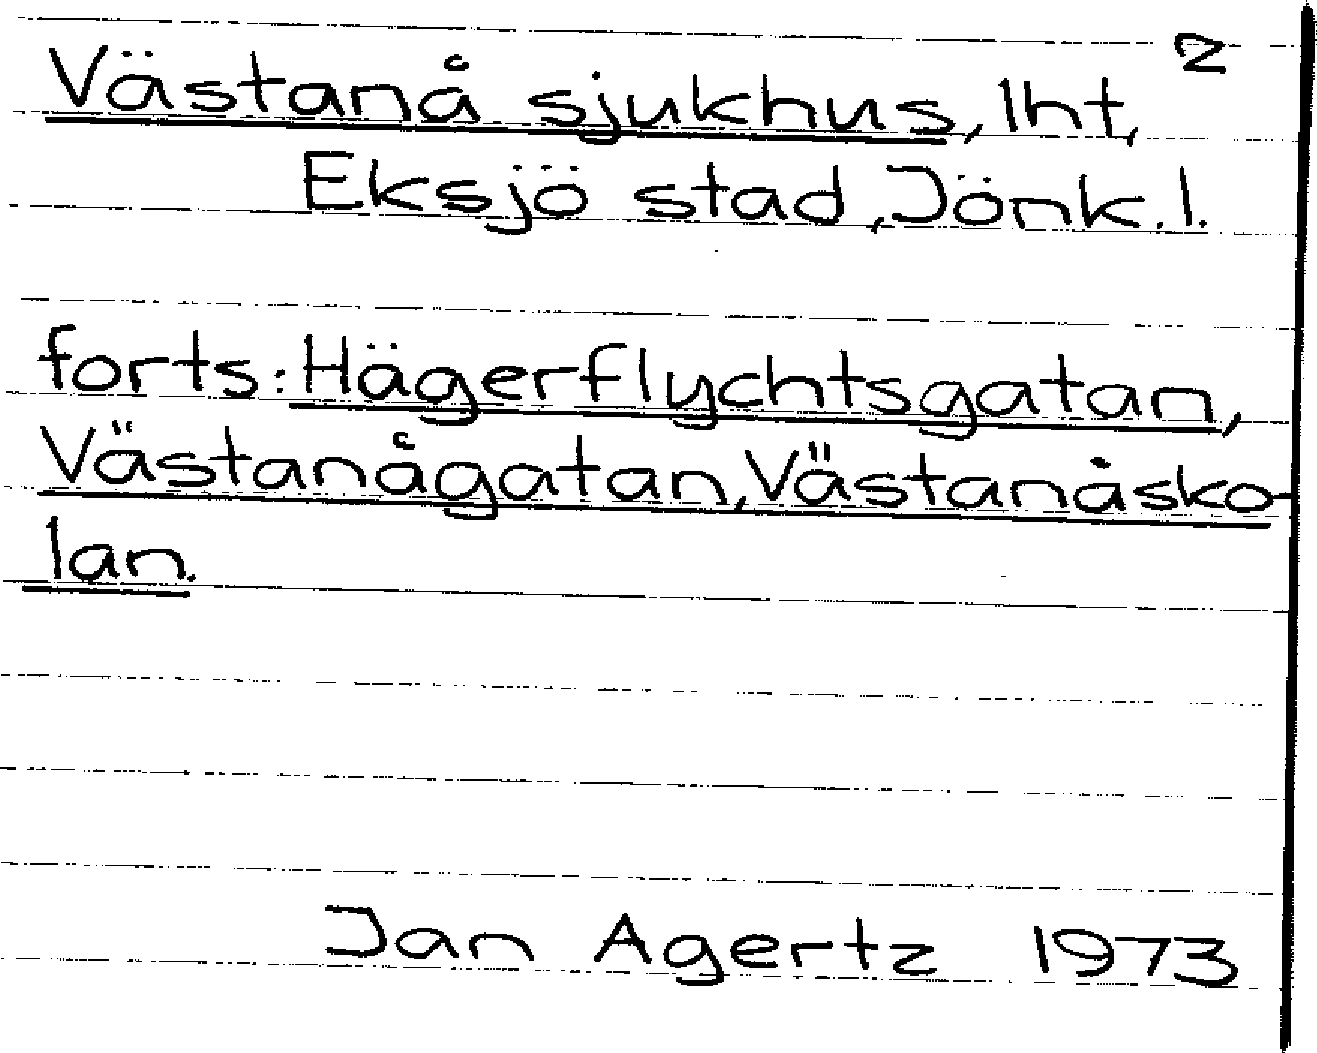 2
Västanå sjukhus, lht,
Eksjö stad, Jönk. l.
forts: Hägerflychtsgatan,
Västanågatan, Västanåsko-
lan.
Jan Agertz 1973